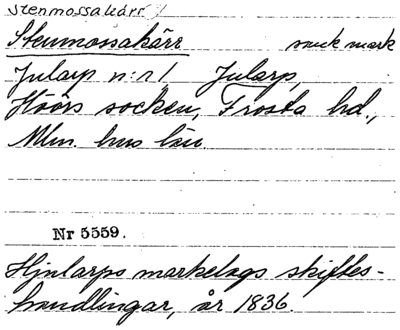 Stenmossakärr
Stenmossakärr sank mark
Jularp n:r 1 Jularp,
Höörs socken, Frosta hd.,
Mlm. hus län.
Nr 5559.
Hjularps markelags skiftes-
handlingar, år 1836.